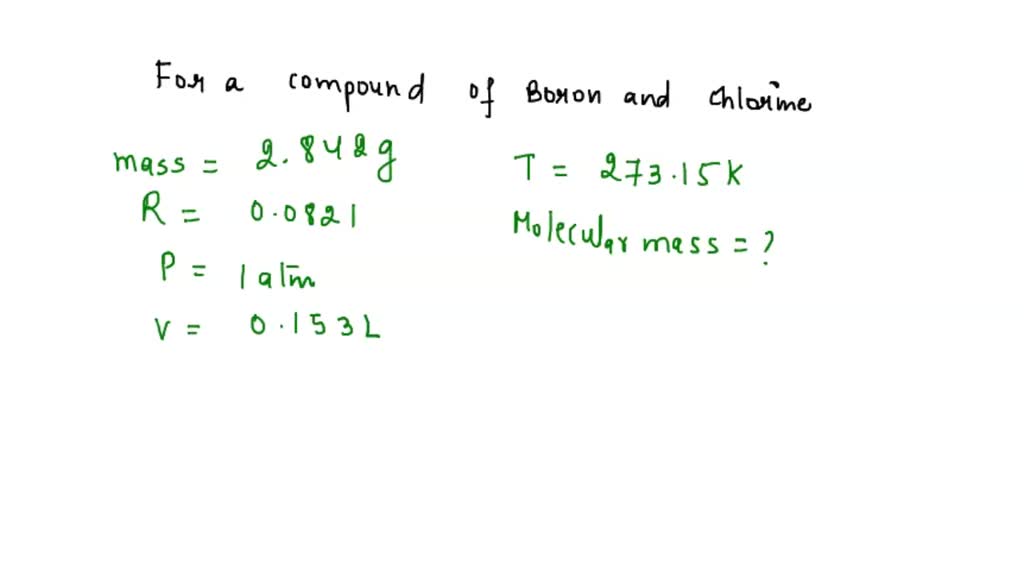 For a compound of Boron and Chlorine
mass = 2.842g
R = 0.0821
P = 1 atm
V = 0.153L
T = 273.15K
Molecular mass = ?